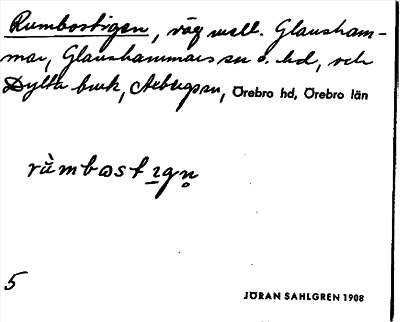 Rumbostigen, väg mell. Glansham-
mar, Glanshammars sn o. hd, och
Dylta bruk, Axbergs sn, Örebro hd, Örebro län
rùmbɷstıgn̥
5
JÖRAN SAHLGREN 1908